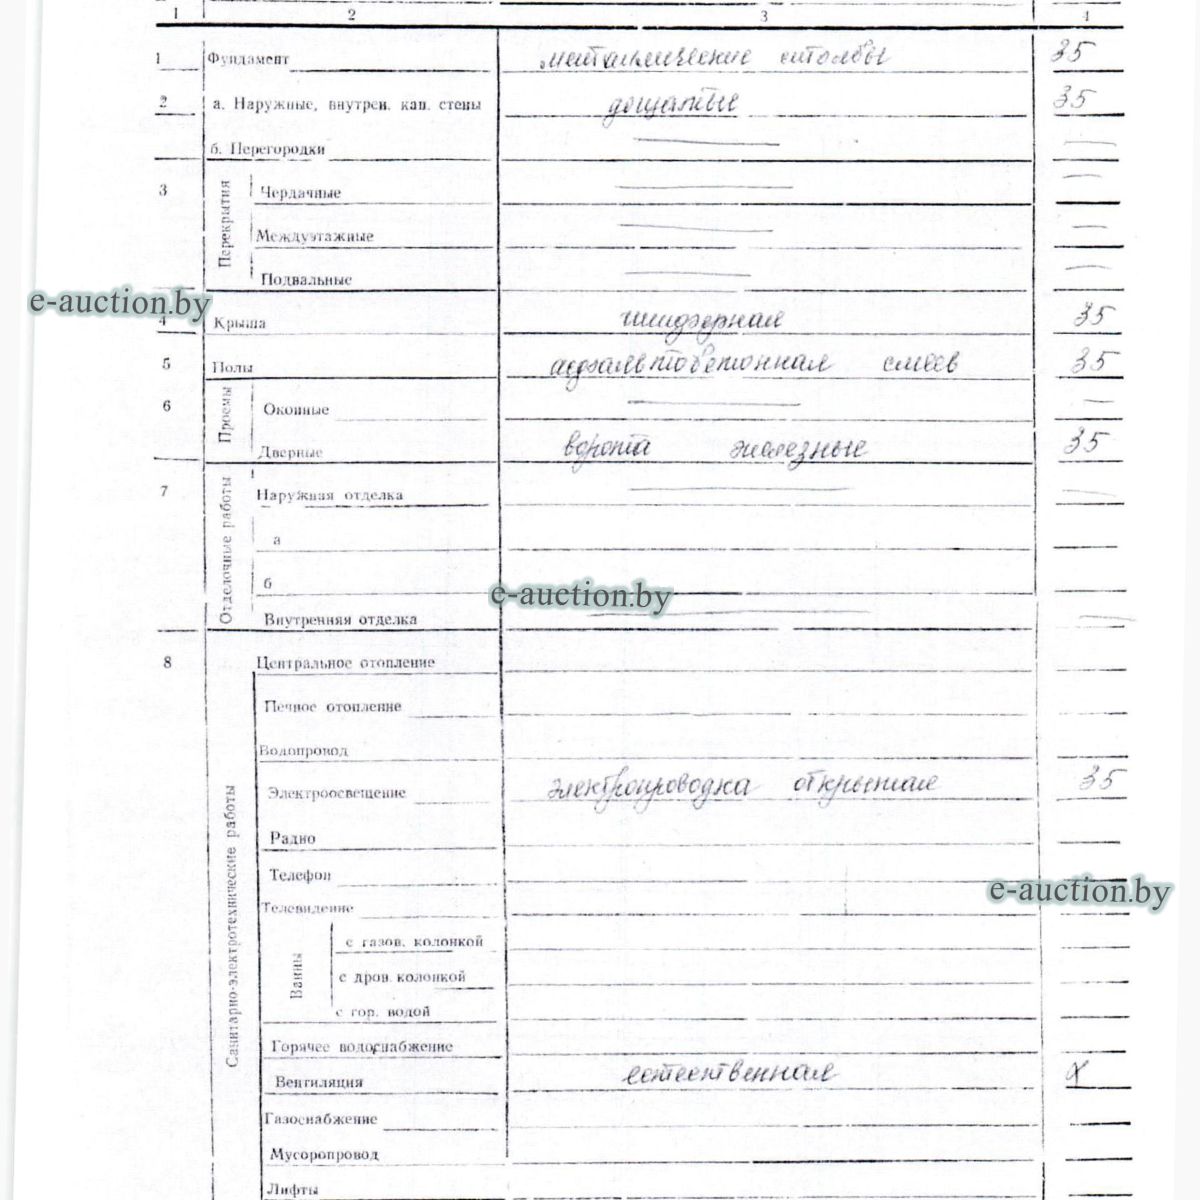 1 2 3 4
1 Фундамент металлические столбы 35
2 а. Наружные, внутрен. кап. стены дощатые 35
б. Перегородки
3 Перекрытия Чердачные
Междуэтажные
Подвальные
e-auction.by
4 Крыша шиферная 35
5 Полы асфальтобетонная смесь 35
6 Проемы Оконные
Дверные ворота железные 35
7 Отделочные работы Наружная отделка
а
б
e-auction.by
Внутренняя отделка
8 Санитарно-электротехнические работы Центральное отопление
Печное отопление
Водопровод
Электроосвещение электропроводка открытая 35
Радио
Телефон
e-auction.by
Телевидение
Ванны с газов. колонкой
с дров. колонкой
с гор. водой
Горячее водоснабжение
Вентиляция естественная
Газоснабжение
Мусоропровод
Лифты